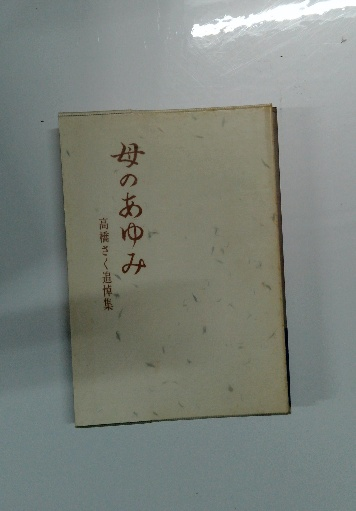 母のあゆみ
高橋さく追悼集